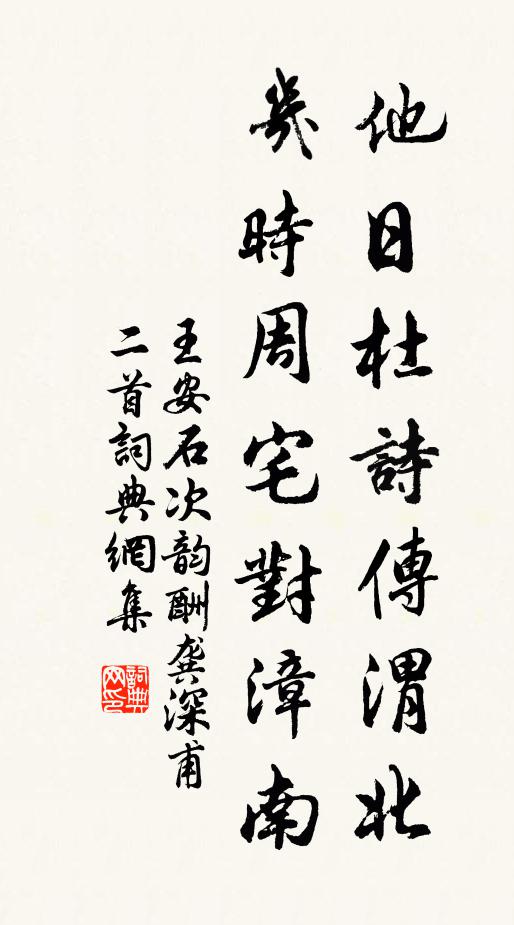 他日杜詩傳渭北
幾時周宅對漳南
王安石次韵酬龚深甫
二首詞典網集
詞典网印